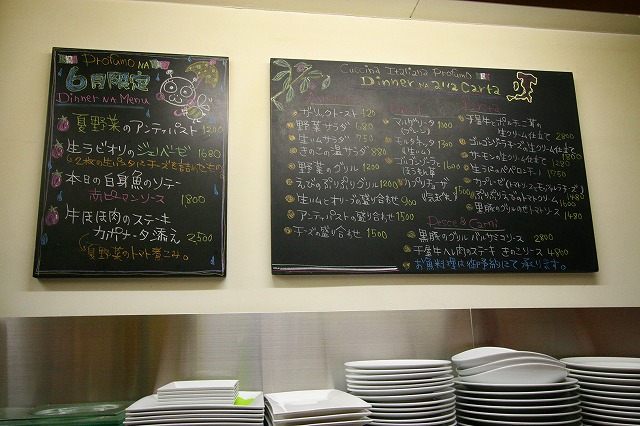 Profumo NA
6月限定
Dinner NA Menu
夏野菜のアンティパスト 1200
生ラビオリの 1680
本日の白身魚のソテー
赤ピーマンソース 1800
牛ほほ肉のステーキ
カポナータ添え 2500
夏野菜のトマト煮こみ。
Cuccina Italiana Profumo
Dinner NA alla Carta
ガーリックトースト 420
野菜サラダ 680
生ハムサラダ
きのこの温サラダ 880
野菜のグリル 1200
えびのぷりぷりグリル 1200
生ハムとオリーブの盛り合わせ 900
アンティパストの盛り合わせ 1500
チーズの盛り合わせ 1500
マルゲリータ 1100
(プレーン)
モルタデッラ 1300
(ハム)
ゴルゴンゾーラ 1600
ほうれん草
カプリチョーザ 1500
生クリーム仕立て 2800
ゴルゴンゾーラチーズの生クリーム仕立て
サーモンの生クリーム仕立て
生うにのペペロンチーノ
えびのトマトクリーム 1600
黒豚のグリルのせトマトソース 1480
Pesce & Carni
黒豚のグリル バルサミコソース 2800
千屋牛ヘレ肉のステーキ きのこソース 4800
お魚料理は御予約にて承ります。